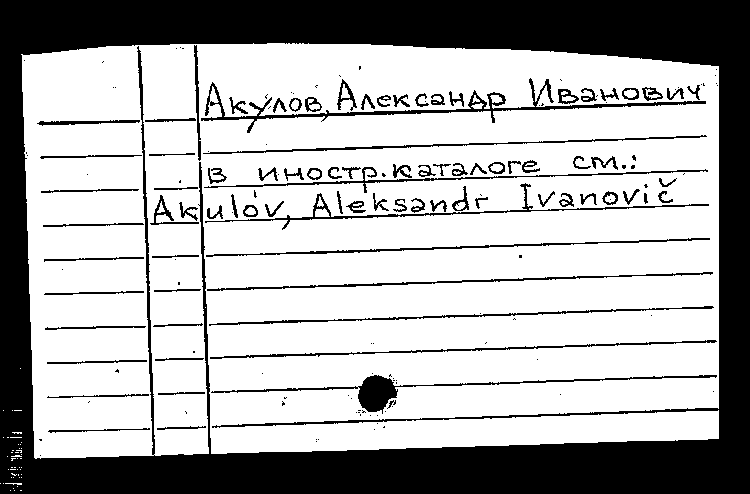 Акулов, Александр Иванович
в иностр. каталоге см.:
Akulóv, Aleksandr Ivanovič